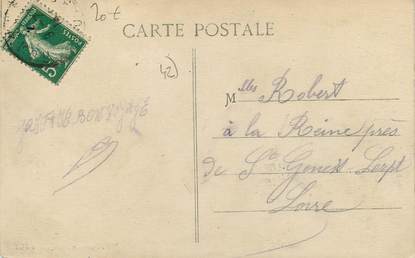 20€
CARTE POSTALE
42)
Mlles Robert
à la Reine près
de St Genest Lerpt
Loire